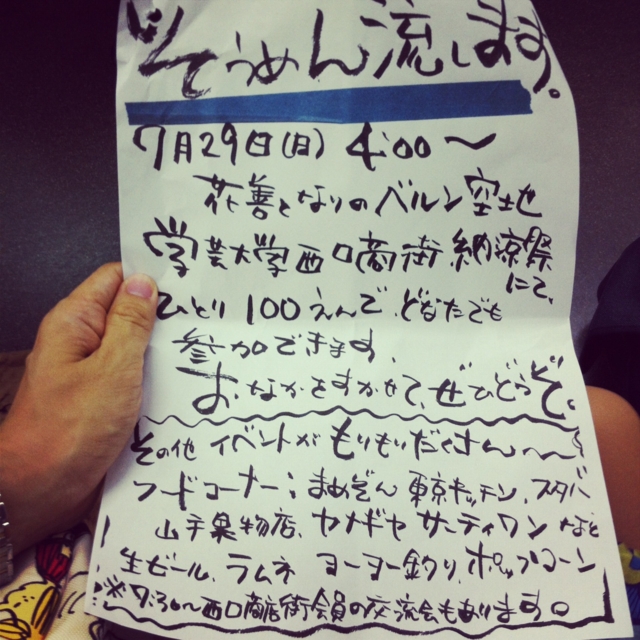 そうめん流します。
7月29日(日) 4:00〜
花善となりのベルン空地
学芸大学西口商街 納涼祭
にて、
ひとり 100えんで、どなたでも
参加できます、
おなかをすかせて、ぜひどうぞ。
その他 イベントが もりもりだくさん〜
フードコーナー: まめぞん 東京キッチン、スタバ
山手果物店、ヤナギヤ サーティワン など
生ビール、ラムネ ヨーヨー釣り、ポップコーン
※7:30〜西口商店街会員の交流会もあります。